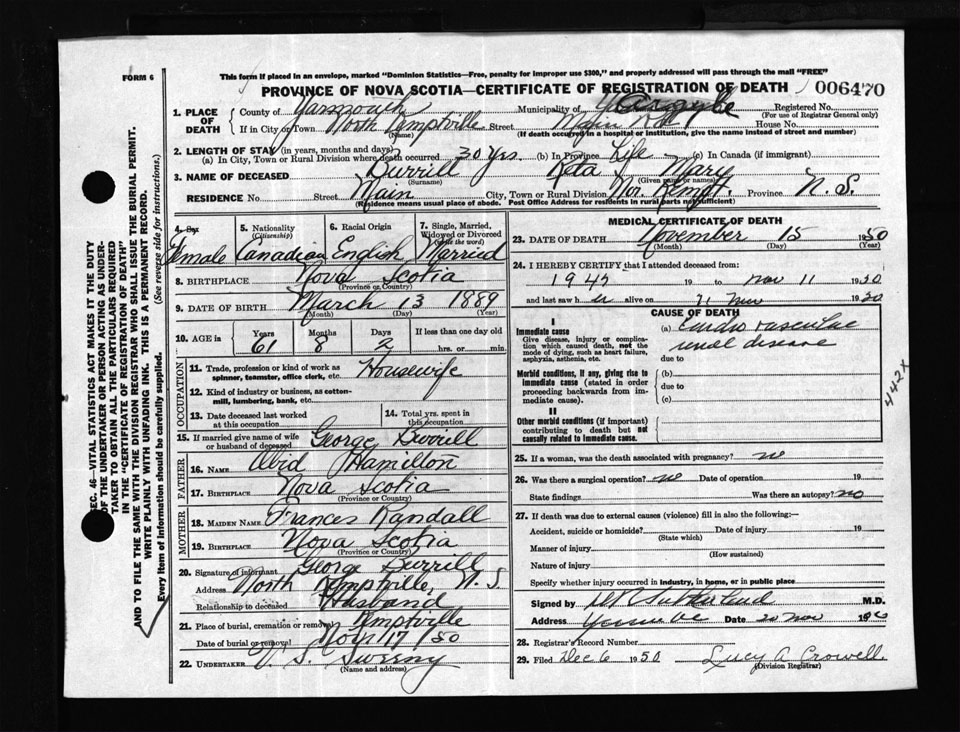 FORM 6
This form if placed in an envelope, marked "Dominion Statistics—Free, penalty for improper use $300," and properly addressed will pass through the mail "FREE"
PROVINCE OF NOVA SCOTIA—CERTIFICATE OF REGISTRATION OF DEATH
006470
1. PLACE OF DEATH
County of Yarmouth Municipality of Argyle Registered No.
(For use of Registrar General only)
If in City or Town North Kemptville Street Main Rd House No.
(Name) (If death occurred in a hospital or institution, give the name instead of street and number)
2. LENGTH OF STAY (in years, months and days)
(a) In City, Town or Rural Division where death occurred 30 yrs. (b) In Province Life (c) In Canada (if immigrant)
3. NAME OF DECEASED Burrill Reta Mary
(Surname) (Given name or names)
RESIDENCE No. Street Main City, Town or Rural Division Nor. Kempt. Province N. S.
(Residence means usual place of abode. Post Office Address for residents in rural parts not sufficient)
4. Sex
Female
5. Nationality
(Citizenship)
Canadian
6. Racial Origin
English
7. Single, Married, Widowed or Divorced
(write the word)
Married
8. BIRTHPLACE Nova Scotia
(Province or Country)
9. DATE OF BIRTH March 13 1889
(Month) (Day) (Year)
10. AGE in
Years Months Days If less than one day old
61 8 2 hrs. or min.
OCCUPATION
11. Trade, profession or kind of work as spinner, teamster, office clerk, etc. Housewife
12. Kind of industry or business, as cotton-mill, lumbering, bank, etc.
13. Date deceased last worked at this occupation
14. Total yrs. spent in this occupation
15. If married give name of wife or husband of deceased George Burrill
FATHER
16. NAME Hamilton
17. BIRTHPLACE Nova Scotia
(Province or Country)
MOTHER
18. MAIDEN NAME Frances Randall
19. BIRTHPLACE Nova Scotia
(Province or Country)
20. Signature of informant George Burrill
Address North Kemptville, N. S.
Relationship to deceased Husband
21. Place of burial, cremation or removal Kemptville
Date of burial or removal Nov 17/50
22. UNDERTAKER V. S. Sweeny
(Name and address)
MEDICAL CERTIFICATE OF DEATH
23. DATE OF DEATH November 15 1950
(Month) (Day) (Year)
24. I HEREBY CERTIFY that I attended deceased from:
1947 19 to Nov 11 1950
and last saw h er alive on 11 Nov 1950
CAUSE OF DEATH
I
Immediate cause
Give disease, injury or complication which caused death, not the mode of dying, such as heart failure, asphyxia, asthenia, etc.
(a) Cardio vascular renal disease
due to
Morbid conditions, if any, giving rise to immediate cause (stated in order proceeding backwards from immediate cause).
(b)
due to
(c)
II
Other morbid conditions (if important) contributing to death but not causally related to immediate cause.
442X
25. If a woman, was the death associated with pregnancy? no
26. Was there a surgical operation? no Date of operation 19
State findings Was there an autopsy? no
27. If death was due to external causes (violence) fill in also the following:—
Accident, suicide or homicide? Date of injury 19
(State which)
Manner of injury
(How sustained)
Nature of injury
Specify whether injury occurred in industry, in home, or in public place
Signed by Sutherland M.D.
Address Date 20 Nov 1950
28. Registrar's Record Number
29. Filed Dec 6 1950 Lucy A Crowell
(Division Registrar)
SEC. 46—VITAL STATISTICS ACT MAKES IT THE DUTY
OF THE UNDERTAKER OR PERSON ACTING AS UNDER-
TAKER TO OBTAIN ALL THE PARTICULARS REQUIRED
IN THE "CERTIFICATE OF REGISTRATION OF DEATH"
AND TO FILE THE SAME WITH THE DIVISION REGISTRAR WHO SHALL ISSUE THE BURIAL PERMIT.
WRITE PLAINLY WITH UNFADING INK. THIS IS A PERMANENT RECORD.
Every item of information should be carefully supplied. (See reverse side for instructions.)